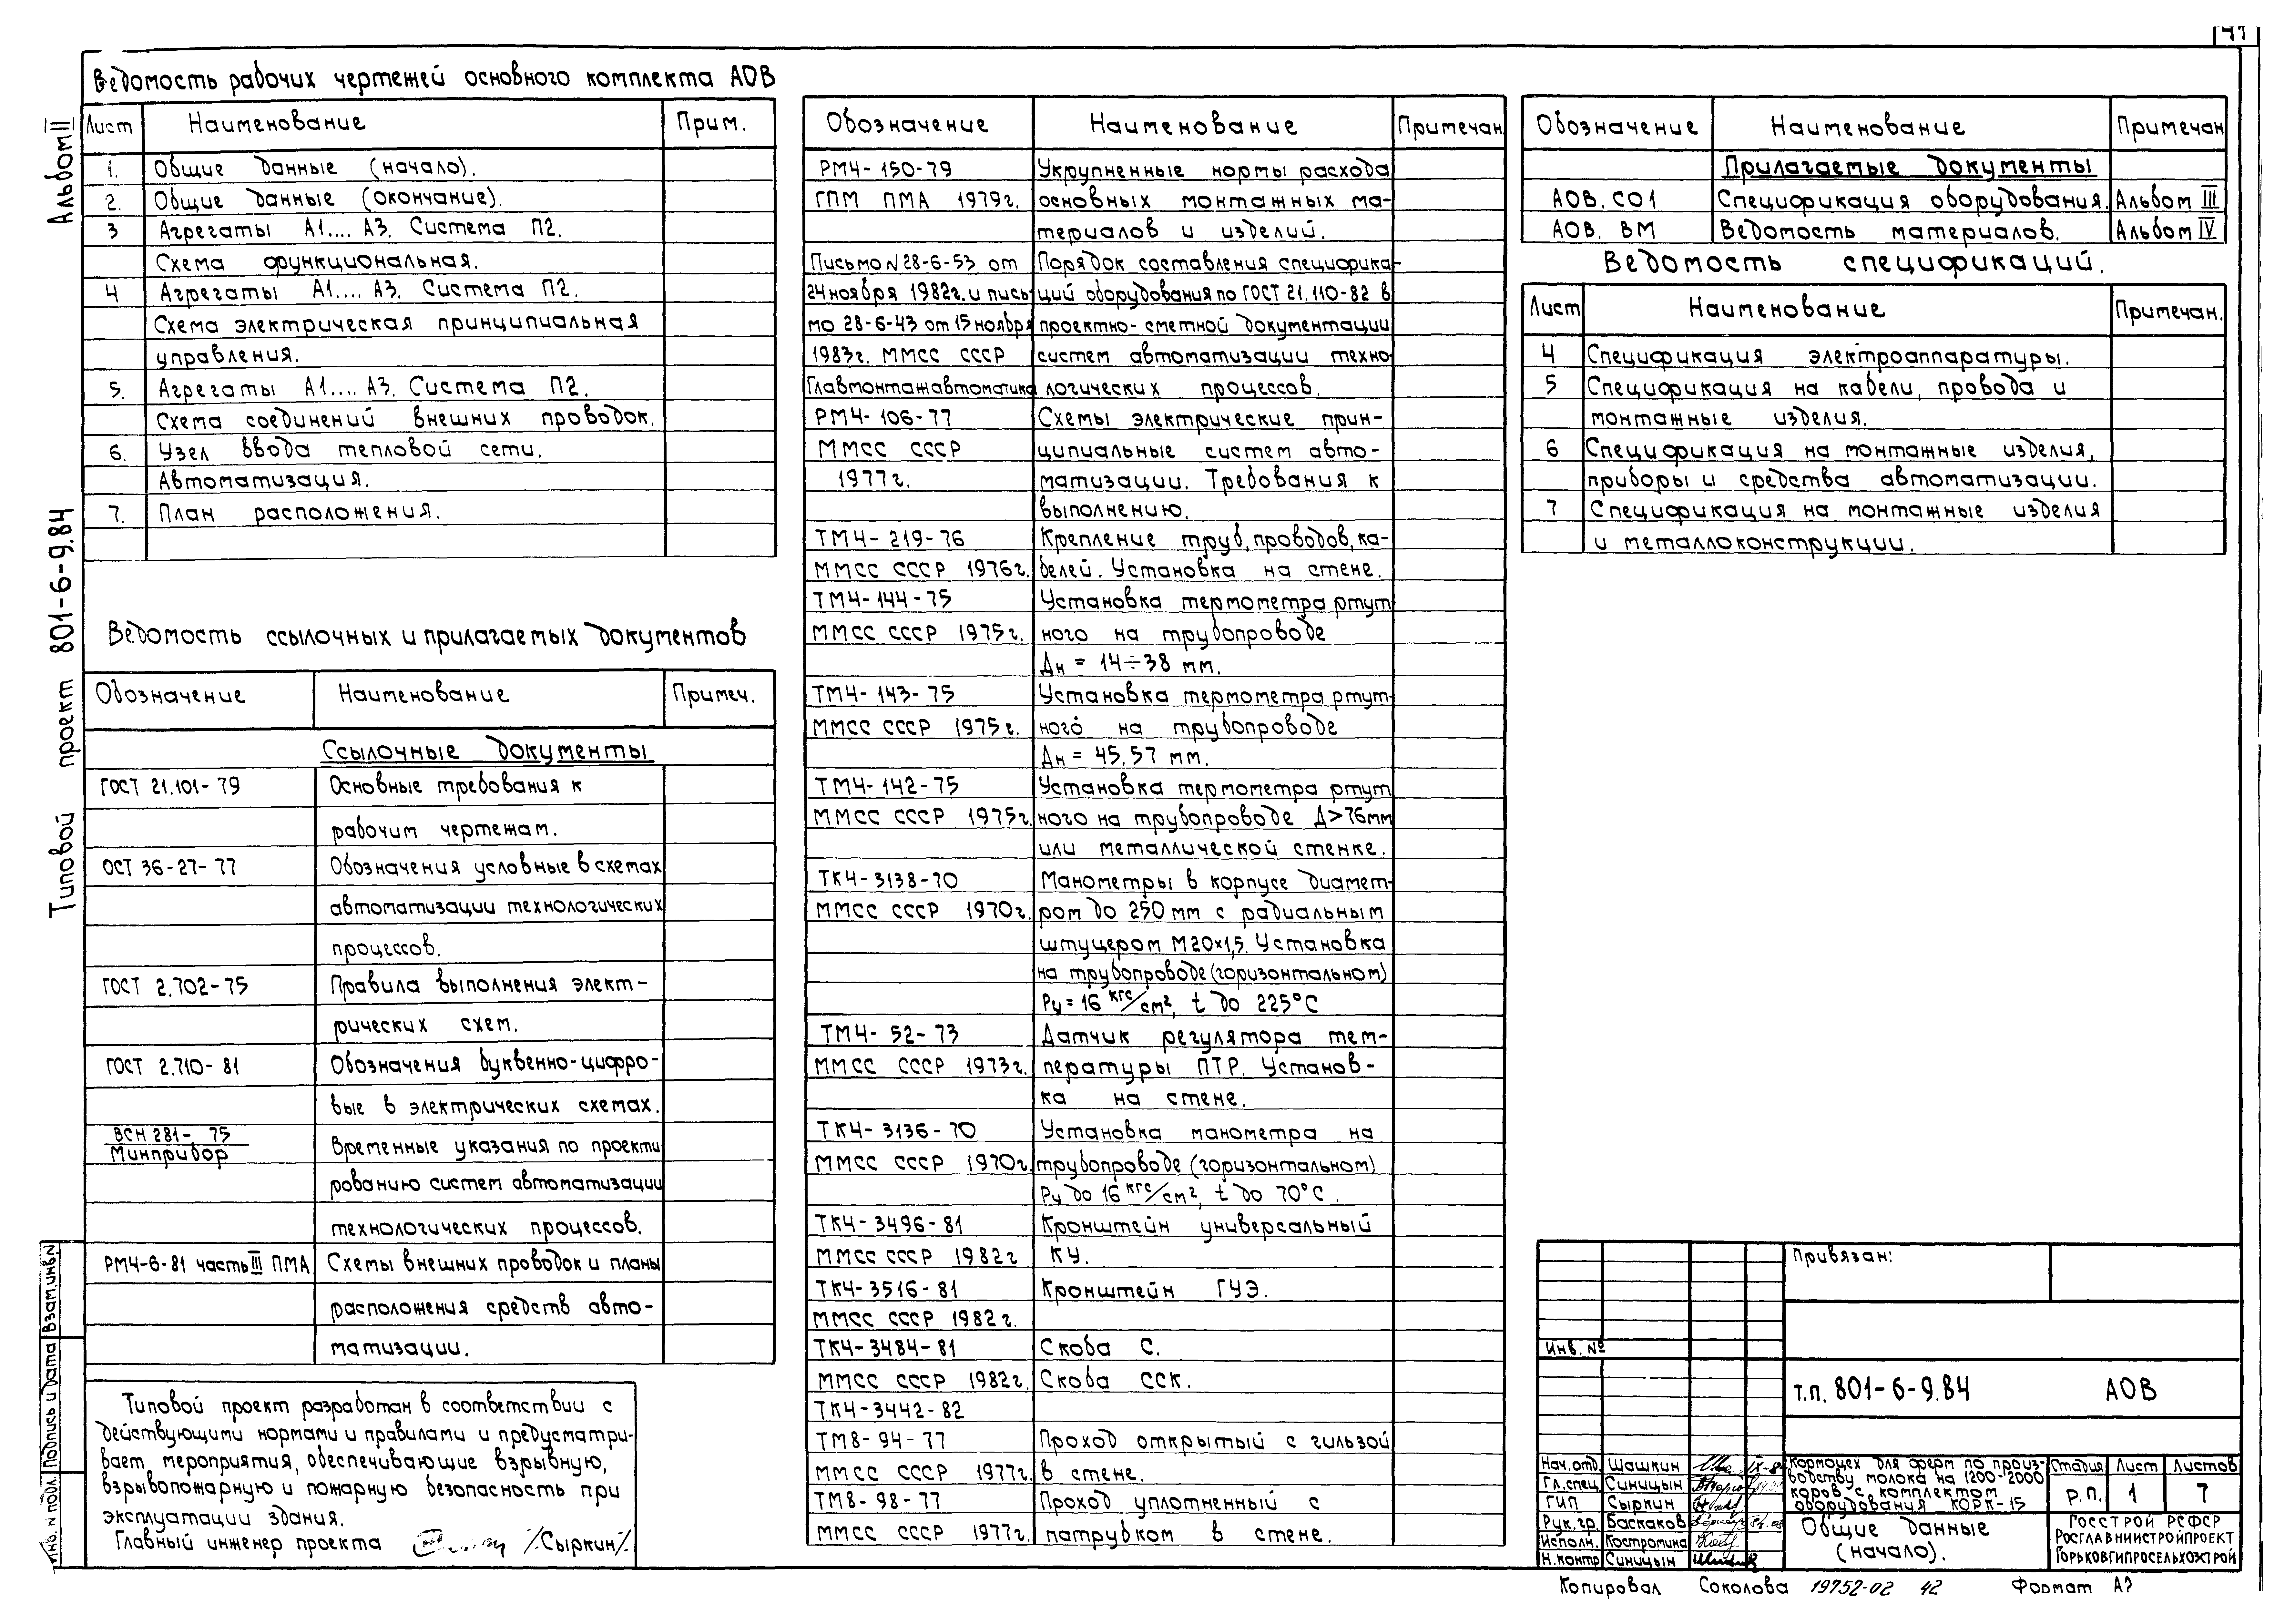 41
Альбом II
Типовой проект 801-6-9.84
Взам.инв.N
Подпись и дата
Инв. N подл.
Ведомость рабочих чертежей основного комплекта АОВ
Лист Наименование Прим.
1. Общие данные (начало).
2. Общие данные (окончание).
3 Агрегаты А1.... А3. Система П2.
Схема функциональная.
4 Агрегаты А1.... А3. Система П2.
Схема электрическая принципиальная
управления.
5. Агрегаты А1.... А3. Система П2.
Схема соединений внешних проводок.
6. Узел ввода тепловой сети.
Автоматизация.
7. План расположения.
Ведомость ссылочных и прилагаемых документов
Обозначение Наименование Примеч.
Ссылочные документы
ГОСТ 21.101-79 Основные требования к
рабочим чертежам.
ОСТ 36-27-77 Обозначения условные в схемах
автоматизации технологических
процессов.
ГОСТ 2.702-75 Правила выполнения элект-
рических схем.
ГОСТ 2.710-81 Обозначения буквенно-цифро-
вые в электрических схемах.
ВСН 281-75
Минприбор Временные указания по проекти
рованию систем автоматизации
технологических процессов.
РМ4-6-81 часть III ПМА Схемы внешних проводок и планы
расположения средств авто-
матизации.
Типовой проект разработан в соответствии с
действующими нормами и правилами и предусматри-
вает мероприятия, обеспечивающие взрывную,
взрывопожарную и пожарную безопасность при
эксплуатации здания.
Главный инженер проекта /Сыркин/.
Обозначение Наименование Примечан
РМ4-150-79 Укрупненные нормы расхода
ГПМ ПМА 1979г. основных монтажных ма-
териалов и изделий.
Письмо N 28-6-53 от Порядок составления специфика-
24 ноября 1982г. и пись- ций оборудования по ГОСТ 21.110-82 в
мо 28-6-43 от 15 ноября проектно-сметной документации
1983г. ММСС СССР систем автоматизации техно-
Главмонтажавтоматика логических процессов.
РМ4-106-77 Схемы электрические прин-
ММСС СССР ципиальные систем авто-
1977г. матизации. Требования к
выполнению.
ТМ4-219-76 Крепление труб, проводов, ка-
ММСС СССР 1976г. белей. Установка на стене.
ТМ4-144-75 Установка термометра ртут-
ММСС СССР 1975г. ного на трубопроводе
Дн = 14÷38 мм.
ТМ4-143-75 Установка термометра ртут-
ММСС СССР 1975г. ного на трубопроводе
Дн = 45.57 мм.
ТМ4-142-75 Установка термометра ртут
ММСС СССР 1975г. ного на трубопроводе Д>76мм
или металлической стенке.
ТК4-3138-70 Манометры в корпусе диамет-
ММСС СССР 1970г. ром до 250 мм с радиальным
штуцером М20×1,5. Установка
на трубопроводе (горизонтальном)
Ру = 16 кгс/см², t до 225°С
ТМ4-52-73 Датчик регулятора тем-
ММСС СССР 1973г. пературы ПТР. Установ-
ка на стене.
ТК4-3136-70 Установка манометра на
ММСС СССР 1970г. трубопроводе (горизонтальном)
Ру до 16 кгс/см², t до 70°С.
ТК4-3496-81 Кронштейн универсальный
ММСС СССР 1982г КУ.
ТК4-3516-81 Кронштейн ГУЭ.
ММСС СССР 1982г.
ТК4-3484-81 Скоба С.
ММСС СССР 1982г. Скоба ССК.
ТК4-3442-82
ТМ8-94-77 Проход открытый с гильзой
ММСС СССР 1977г. в стене.
ТМ8-98-77 Проход уплотненный с
ММСС СССР 1977г. патрубком в стене.
Обозначение Наименование Примечан
Прилагаемые документы
АОВ. СО1 Спецификация оборудования. Альбом III
АОВ. ВМ Ведомость материалов. Альбом IV
Ведомость спецификаций.
Лист Наименование Примечан.
4 Спецификация электроаппаратуры.
5 Спецификация на кабели, провода и
монтажные изделия.
6 Спецификация на монтажные изделия,
приборы и средства автоматизации.
7 Спецификация на монтажные изделия
и металлоконструкции.
Привязан:
Инв. №
т.п. 801-6-9.84 АОВ
Нач.отд. Шашкин
Гл.спец. Синицын
ГИП Сыркин
Рук.гр. Баскаков
Исполн. Костромина
Н.контр Синицын
Кормоцех для ферм по произ-
водству молока на 1200-2000
коров с комплектом
оборудования КОРК-15
Стадия Лист Листов
Р.П. 1 7
Общие данные
(начало).
ГОССТРОЙ РСФСР
РОСГЛАВНИИСТРОЙПРОЕКТ
ГОРЬКОВГИПРОСЕЛЬХОЗСТРОЙ
Копировал Соколова 19752-02 42 Формат А2